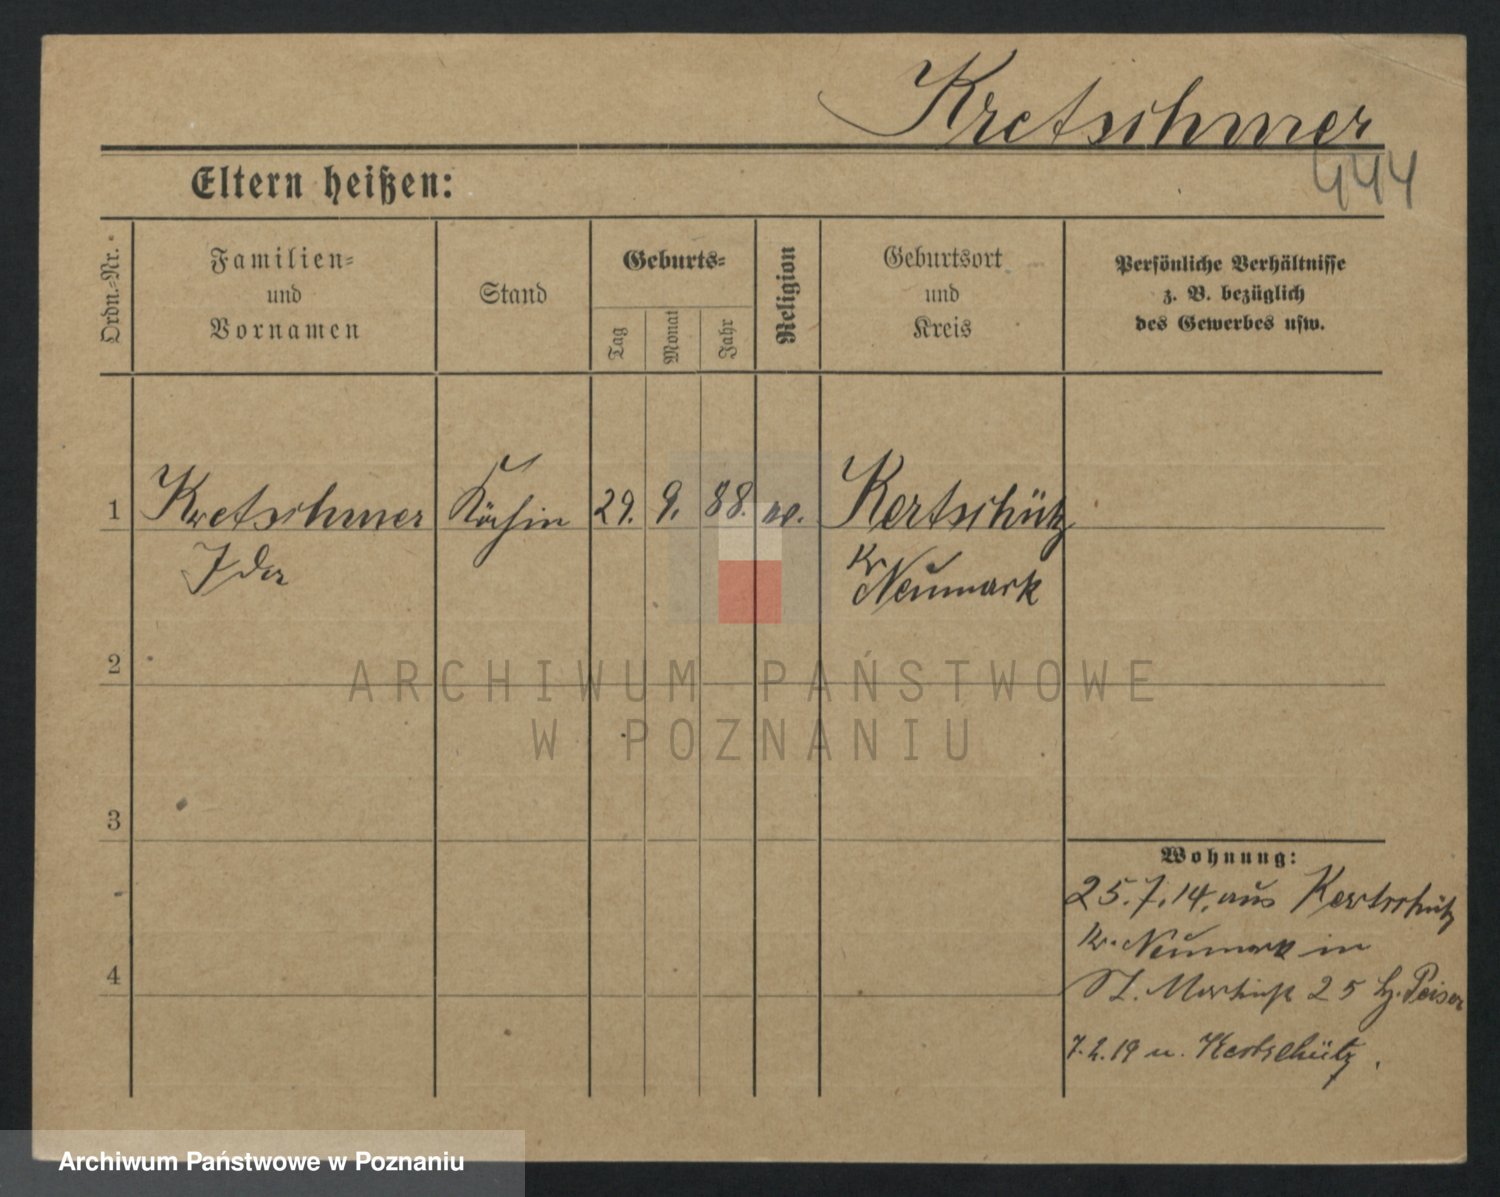 Kretschmer
444
Eltern heißen:
Ordn.-Nr.
Familien-
und
Vornamen
Stand
Geburts-
Tag
Monat
Jahr
Religion
Geburtsort
und
Kreis
Persönliche Verhältnisse
z. B. bezüglich
des Gewerbes usw.
1
Kretschmer
Ida
Köchin
29.
9.
88.
ev.
Kertschütz
Kr
Neumark
2
ARCHIWUM PAŃSTWOWE
W POZNANIU
3
4
Wohnung:
25.7.14. aus Kertschütz
Kr. Neumark in
St. Martinstr 25 b. Peiser
7.2.19 n. Kertschütz.
Archiwum Państwowe w Poznaniu